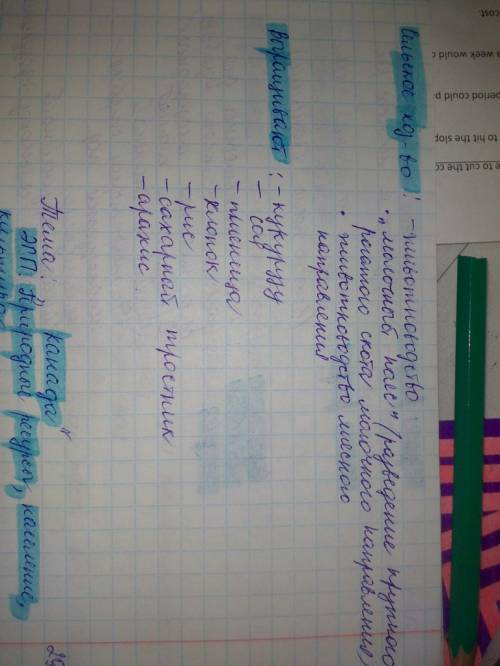 Сельское хоз-во: - животноводство
• "молочный пояс" (разведение крупного
рогатого скота молочного направления)
• животноводство мясного
направления
Выращивают: - кукурузу
- соя
- пшеница
- хлопок
- рис
- сахарный тростник
- арахис
Тема: "Канада"
ЭГП. Природные ресурсы, население,
29
cost.
a week would c
period could p
to hit the slop
e to cut the co